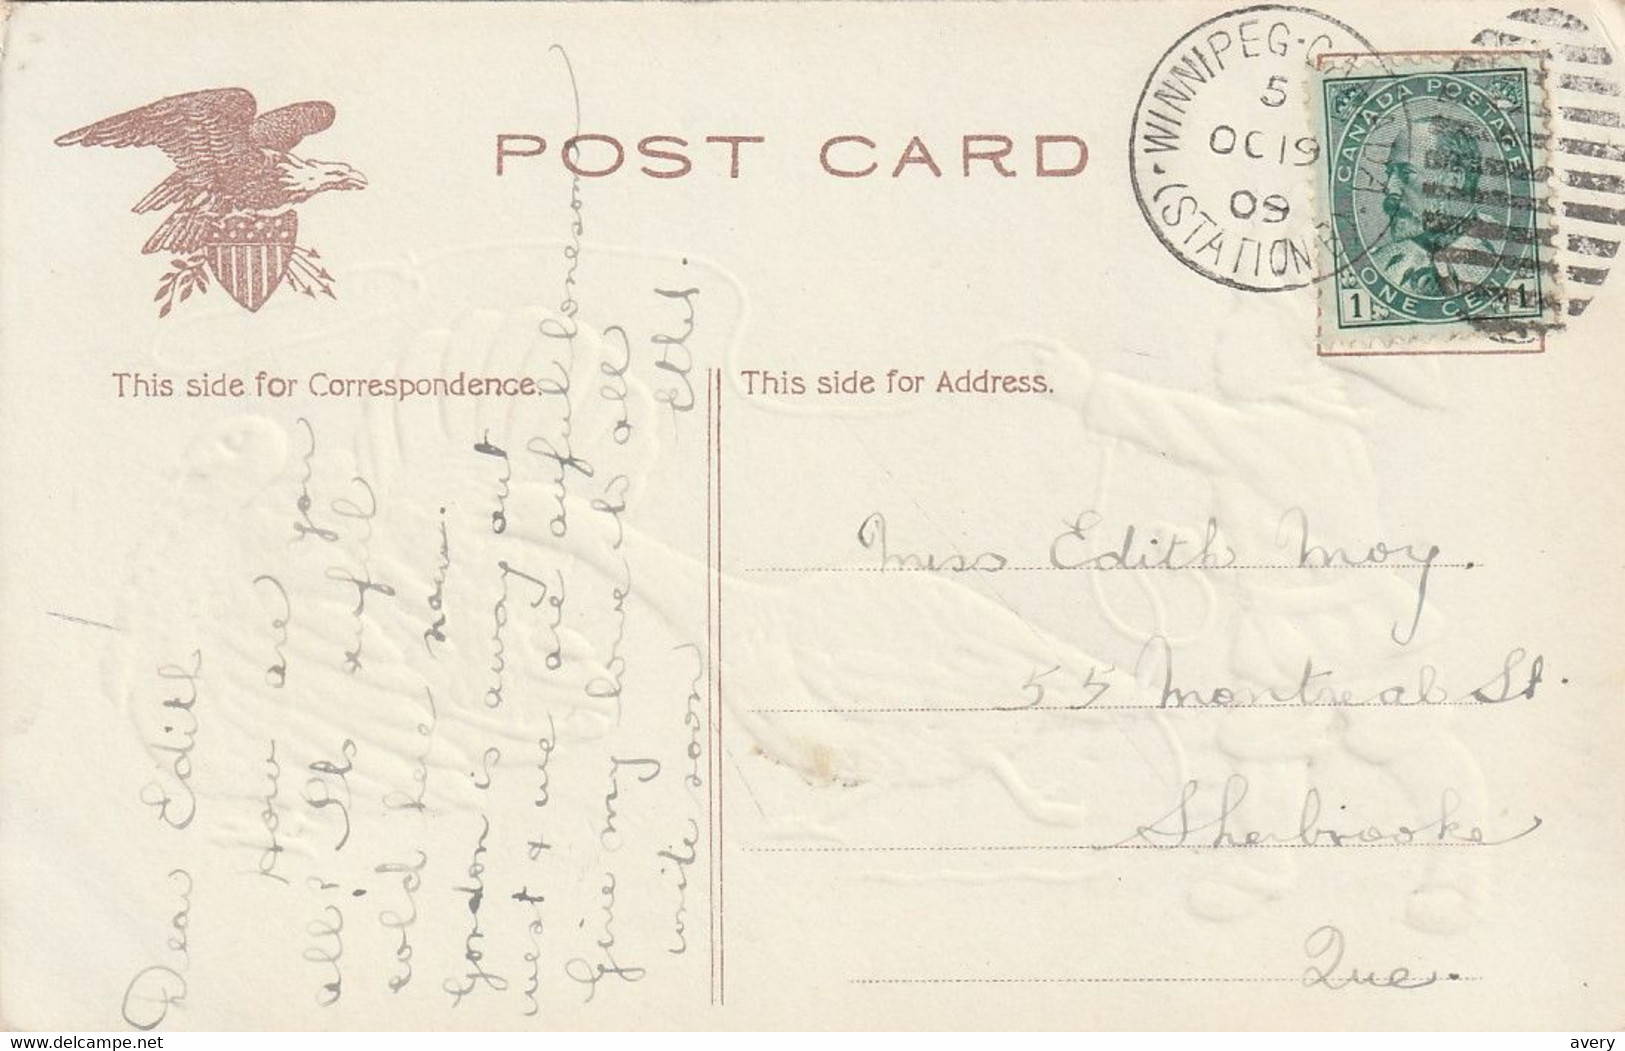 POST CARD
This side for Correspondence.
This side for Address.
WINNIPEG
5
OC 19
09
(STATION B)
CANADA POSTAGE
1 ONE CENT 1
Dear Edith
How are you
all? It's awful
cold here now.
Gordon is away out
west & we are awful lonesome
Give my love to all
write soon Ethel.
Miss Edith Moy.
55 Montreal St.
Sherbrooke
Que.
www.delcampe.net
avery